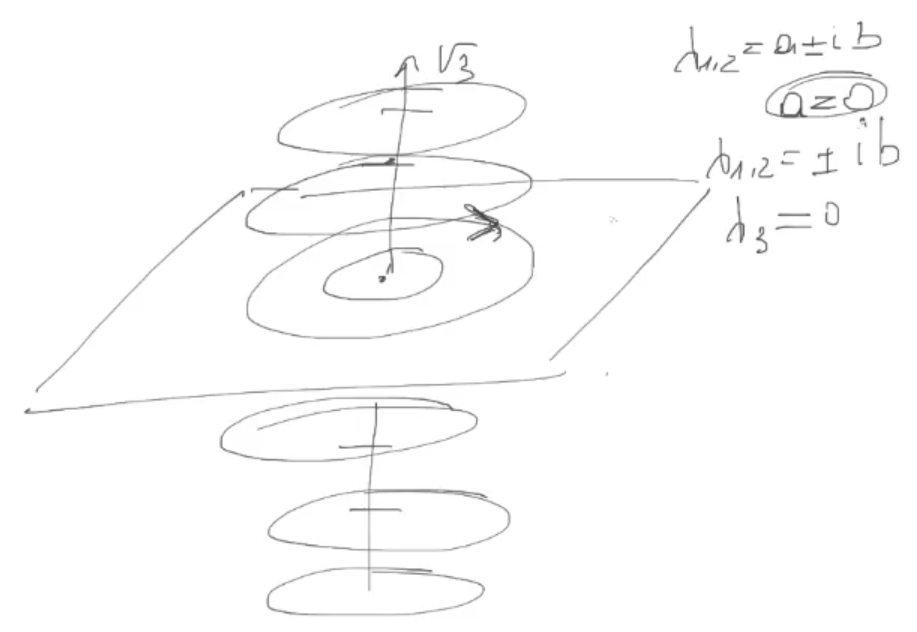 V3
λ1,2 = a ± i b
a = 0
λ1,2 = ± i b
λ3 = 0